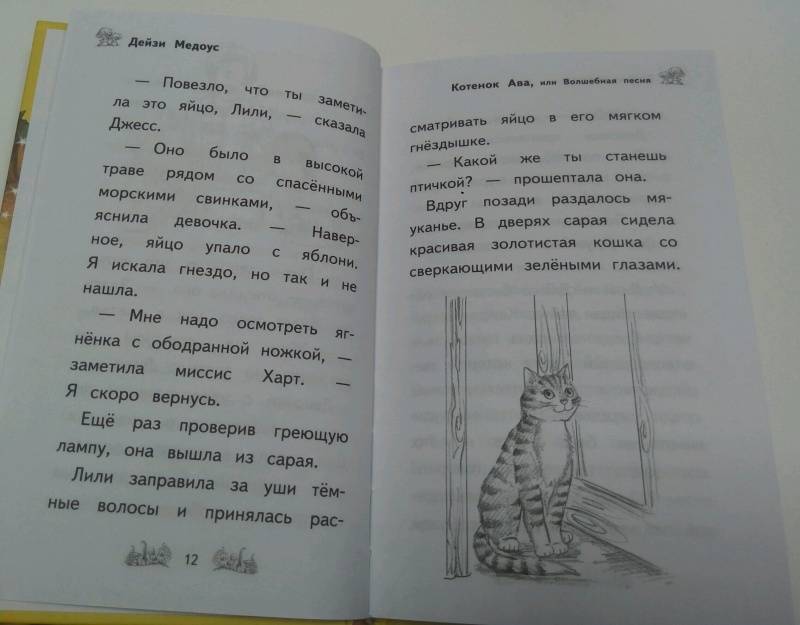 Дейзи Медоус
— Повезло, что ты замети-
ла это яйцо, Лили, — сказала
Джесс.
— Оно было в высокой
траве рядом со спасёнными
морскими свинками, — объ-
яснила девочка. — Навер-
ное, яйцо упало с яблони.
Я искала гнездо, но так и не
нашла.
— Мне надо осмотреть яг-
нёнка с ободранной ножкой, —
заметила миссис Харт. —
Я скоро вернусь.
Ещё раз проверив греющую
лампу, она вышла из сарая.
Лили заправила за уши тём-
ные волосы и принялась рас-
12
Котенок Ава, или Волшебная песня
сматривать яйцо в его мягком
гнёздышке.
— Какой же ты станешь
птичкой? — прошептала она.
Вдруг позади раздалось мя-
уканье. В дверях сарая сидела
красивая золотистая кошка со
сверкающими зелёными глазами.